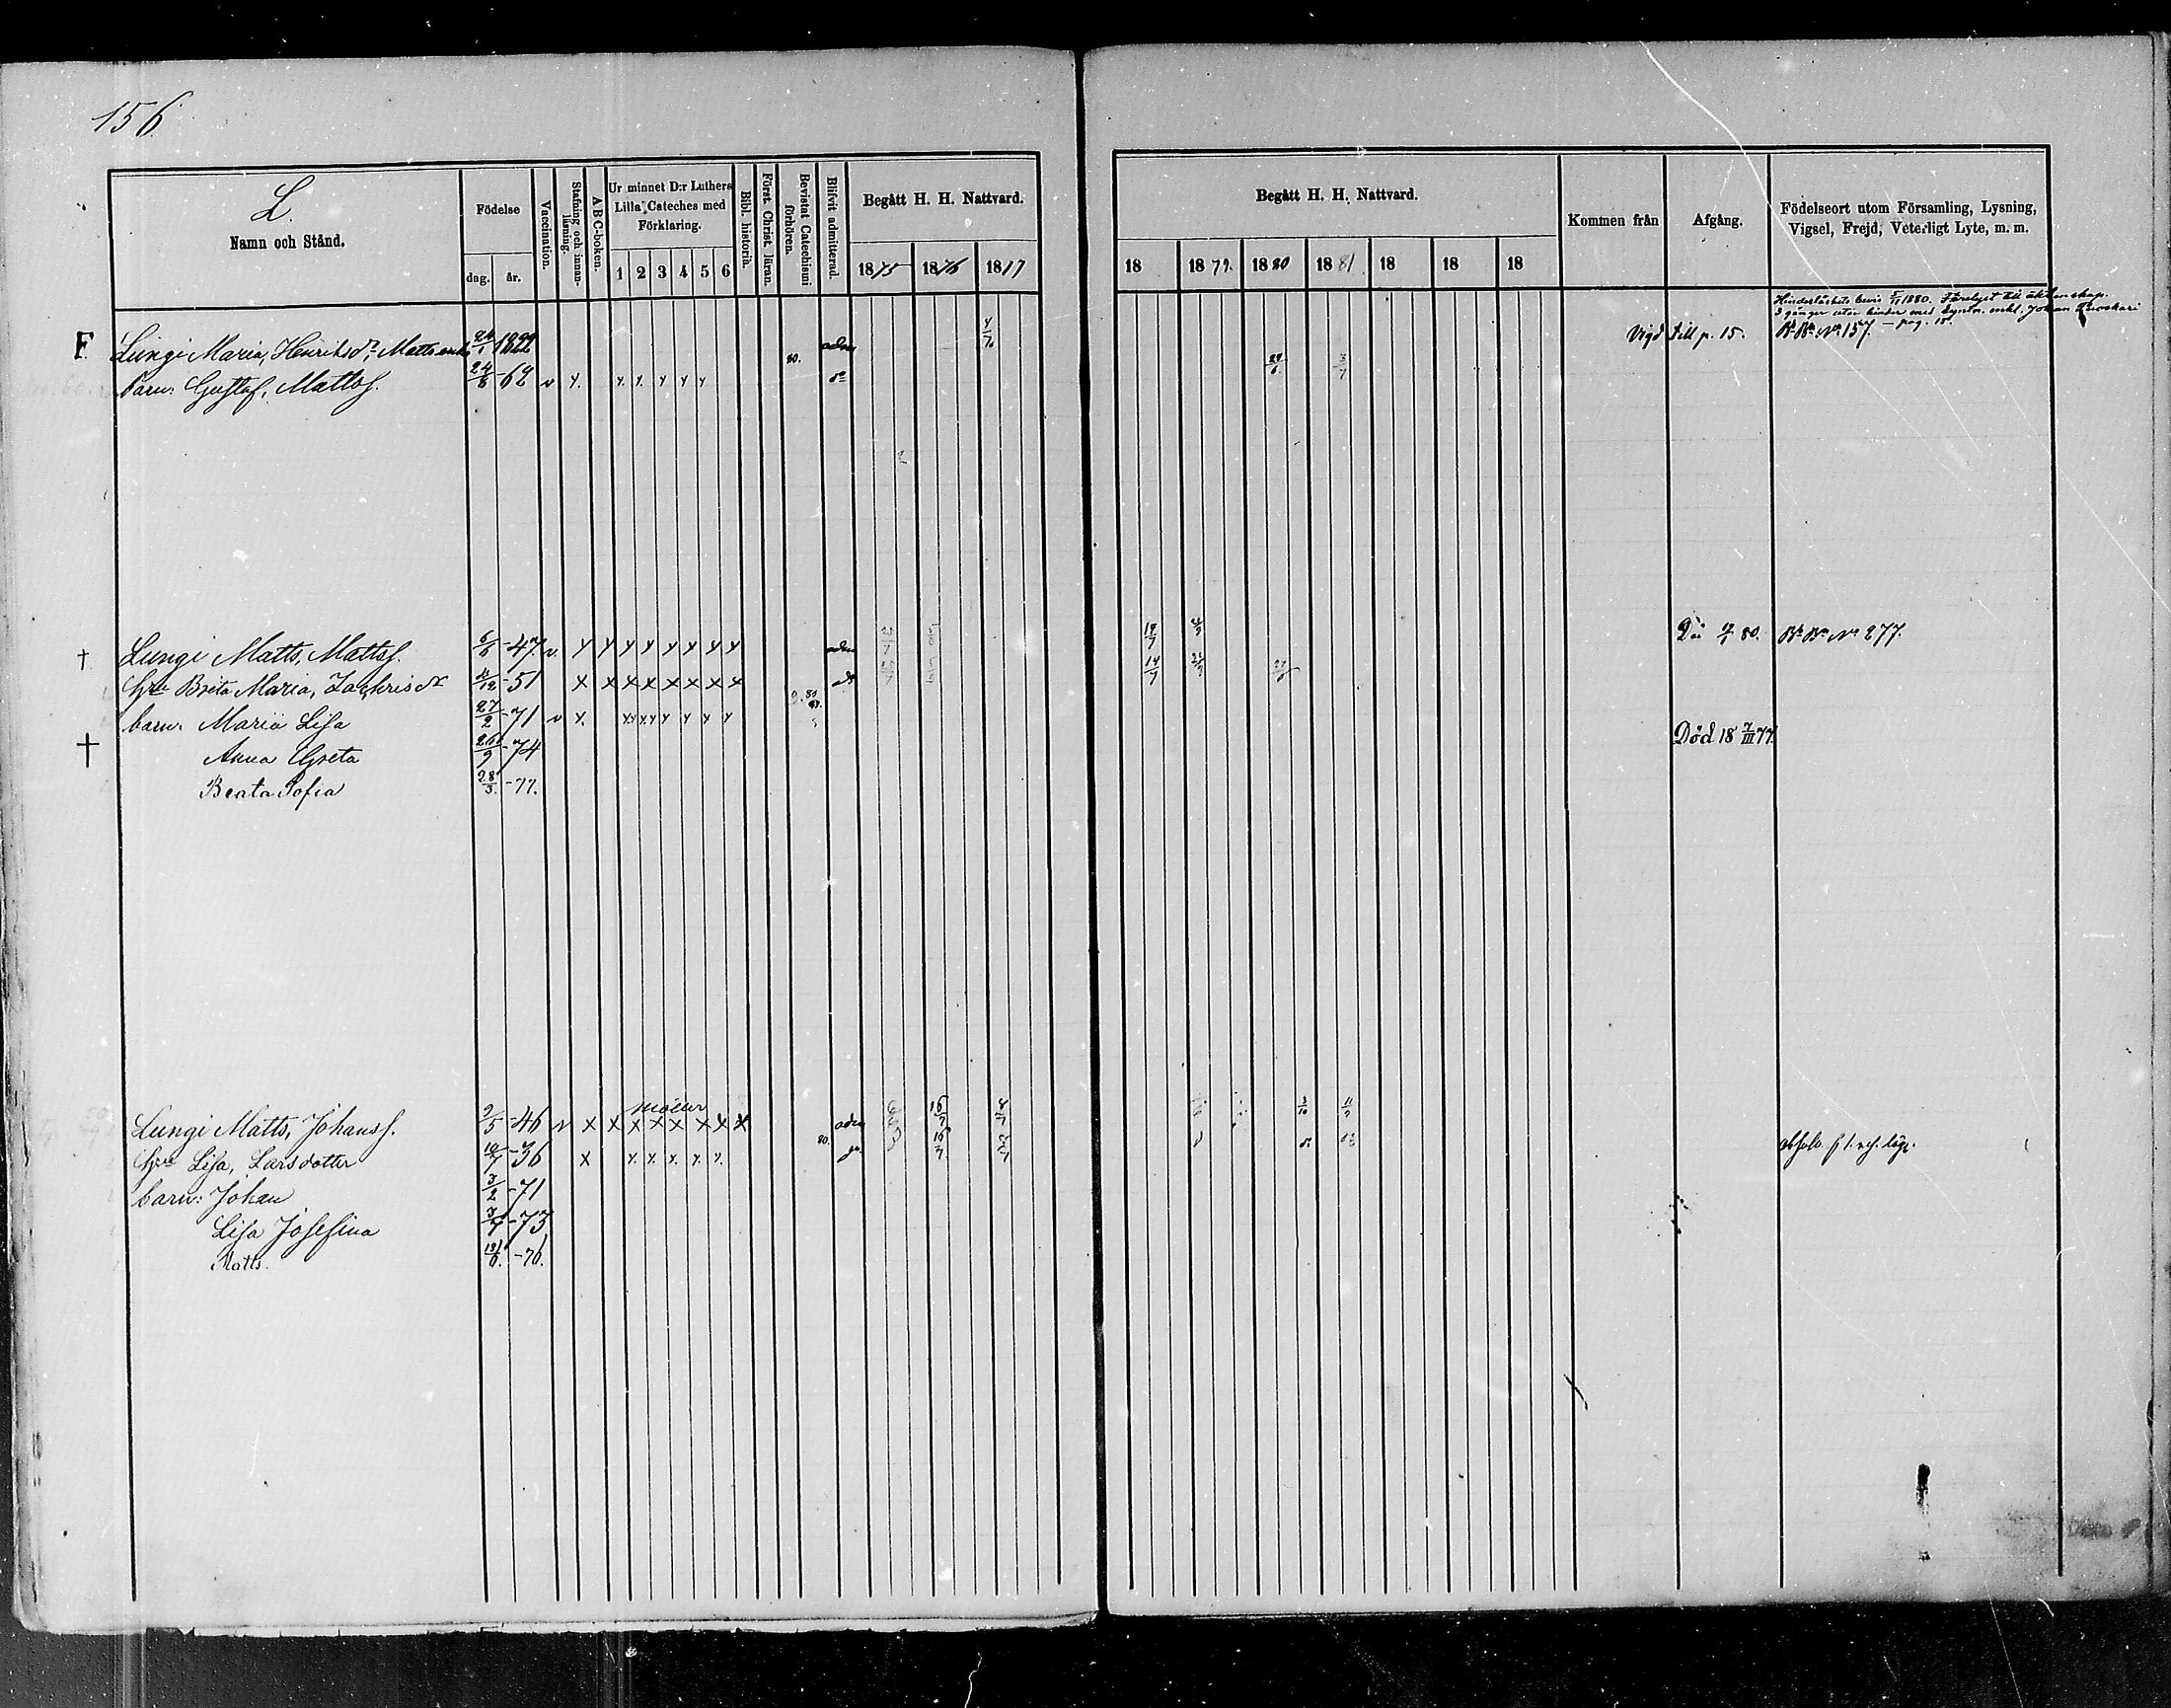 156
L.
Namn och Stånd.
Födelse
dag. år.
Vaccination.
Stafning och innanläsning.
A B C-boken.
Ur minnet D:r Luthers Lilla Cateches med Förklaring.
1 2 3 4 5 6
Bibl. historia.
Först. Christ. läran.
Bevistat Catechismi förhören.
Blifvit admitterad.
Begått H. H. Nattvard.
1875 1876 1877
Begått H. H. Nattvard.
18 1879. 1880 1881 18 18 18
Kommen från
Afgång.
Födelseort utom Församling, Lysning, Vigsel, Frejd, Veterligt Lyte, m. m.
Hinderlöshets bevis 5/11 1880. Förelyst till äktenskap.
3 gånger utan hinder med enkl. Johan
F Lungi Maria, Henriksdr, Matts enka 24/1 1822 adm 4/7 Vigd till p. 15. No 157. – pag. 15.
barn: Gustaf, Mattsf. 24/6 -62 v x. x x x x x 80. do 3/7
† Lungi Matts, Mattsf. 6/6 -47. v. x x x x x x x x adm 14/7 Dö 80. No 277.
Hru Breta Maria, Zachrisdr 4/12 -51 x x x x x x x x 14/7
barn: Maria Lisa 27/2 -71 v x. x x x x x x
† Anna Greta 26/9 -74 Död 18 7/III 77.
Beata Sofia 28/3. -77.
Lungi Matts, Johansf. 9/5 -46 v x x x x x x x x adm 16/7 8/7 3/10 11/7
Hru Lisa, Larsdotter -36 x x. x. x. x. x. 80. 16/7
barn: Johan 3/2 -71
Lisa Josefina 3/7 -73
Matts. -76.